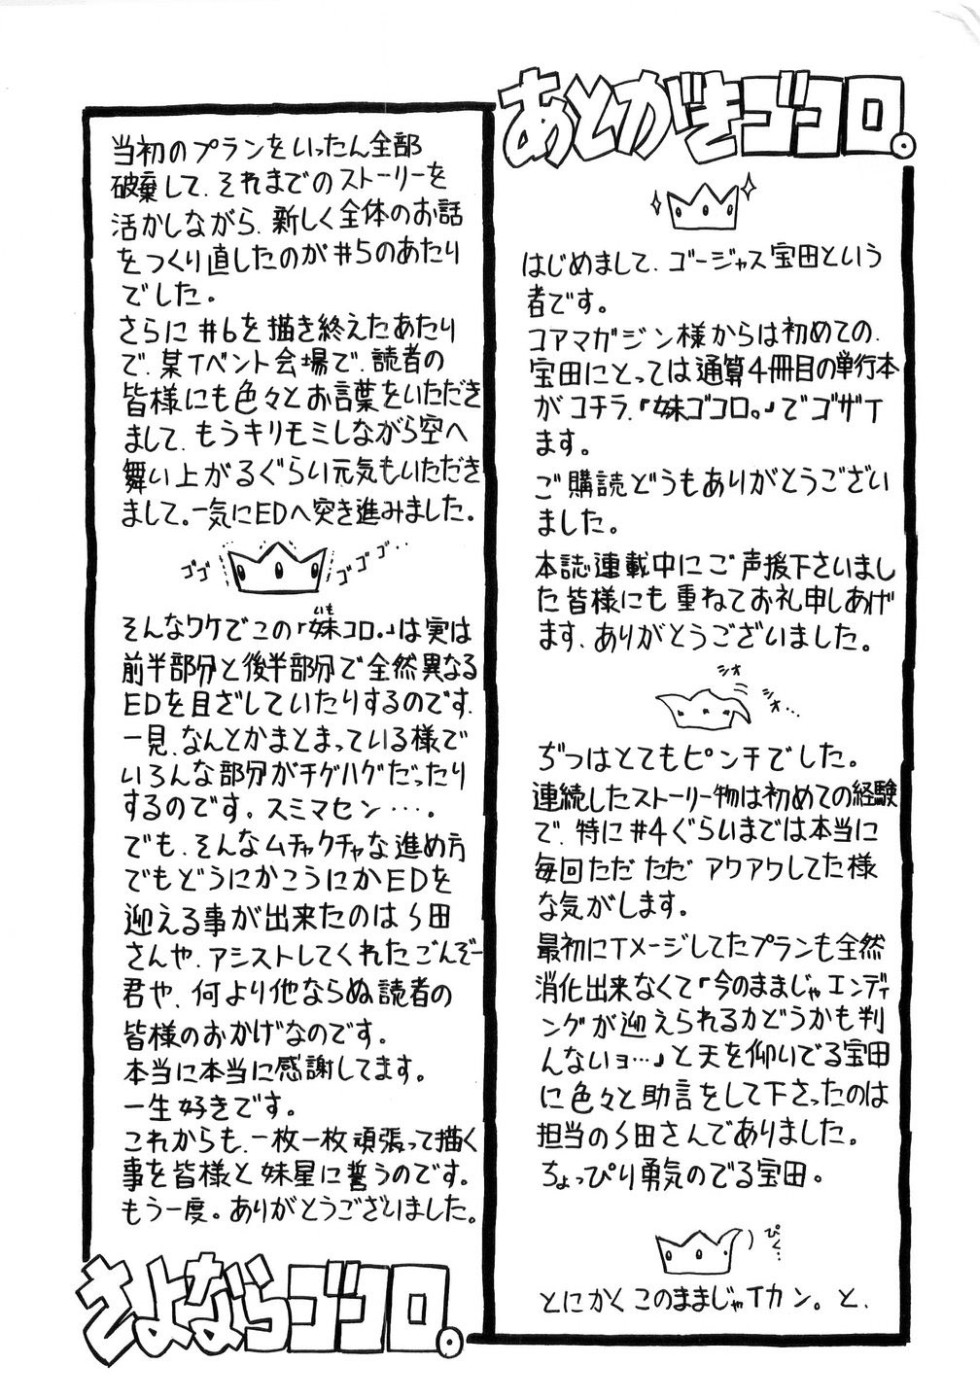 あとがきゴコロ。
はじめまして、ゴージャス宝田という
者です。
コアマガジン様からは初めての、
宝田にとっては通算4冊目の単行本
がコチラ、『妹ゴコロ。』でゴザイ
ます。
ご購読どうもありがとうござい
ました。
本誌連載中にご声援下さいまし
た皆様にも重ねてお礼申しあげ
ます、ありがとうございました。
シオ
シオ…
ぢつはとてもピンチでした。
連続したストーリー物は初めての経験
で、特に#4ぐらいまでは本当に
毎回ただただアワアワしてた様
な気がします。
最初にイメージしてたプランも全然
消化出来なくて『今のままじゃエンディ
ングが迎えられるかどうかも判
んないョ…』と天を仰いでる宝田
に色々と助言をして下さったのは
担当のS田さんでありました。
ちょっぴり勇気のでる宝田。
ぴく…
とにかくこのままじゃイカン。と、
当初のプランをいったん全部
破棄して、それまでのストーリーを
活かしながら、新しく全体のお話
をつくり直したのが#5のあたり
でした。
さらに#6を描き終えたあたり
で、某イベント会場で、読者の
皆様にも色々とお言葉をいただき
まして、もうキリモミしながら空へ
舞い上がるぐらい元気もいただき
まして。一気にEDへ突き進みました。
ゴゴゴ
ゴゴゴ…
そんなワケでこの『妹コロ。』は実は
いも
前半部分と後半部分で全然異なる
EDを目ざしていたりするのです、
一見、なんとかまとまっている様で
いろんな部分がチグハグだったり
するのです。スミマセン…。
でも、そんなムチャクチャな進め方
でもどうにかこうにかEDを
迎える事が出来たのはS田
さんや、アシストしてくれたごんぞー
君や、何より他ならぬ読者の
皆様のおかげなのです。
本当に本当に感謝してます。
一生好きです。
これからも、一枚一枚頑張って描く
事を皆様と妹星に誓うのです。
もう一度。ありがとうございました。
さよならゴコロ。